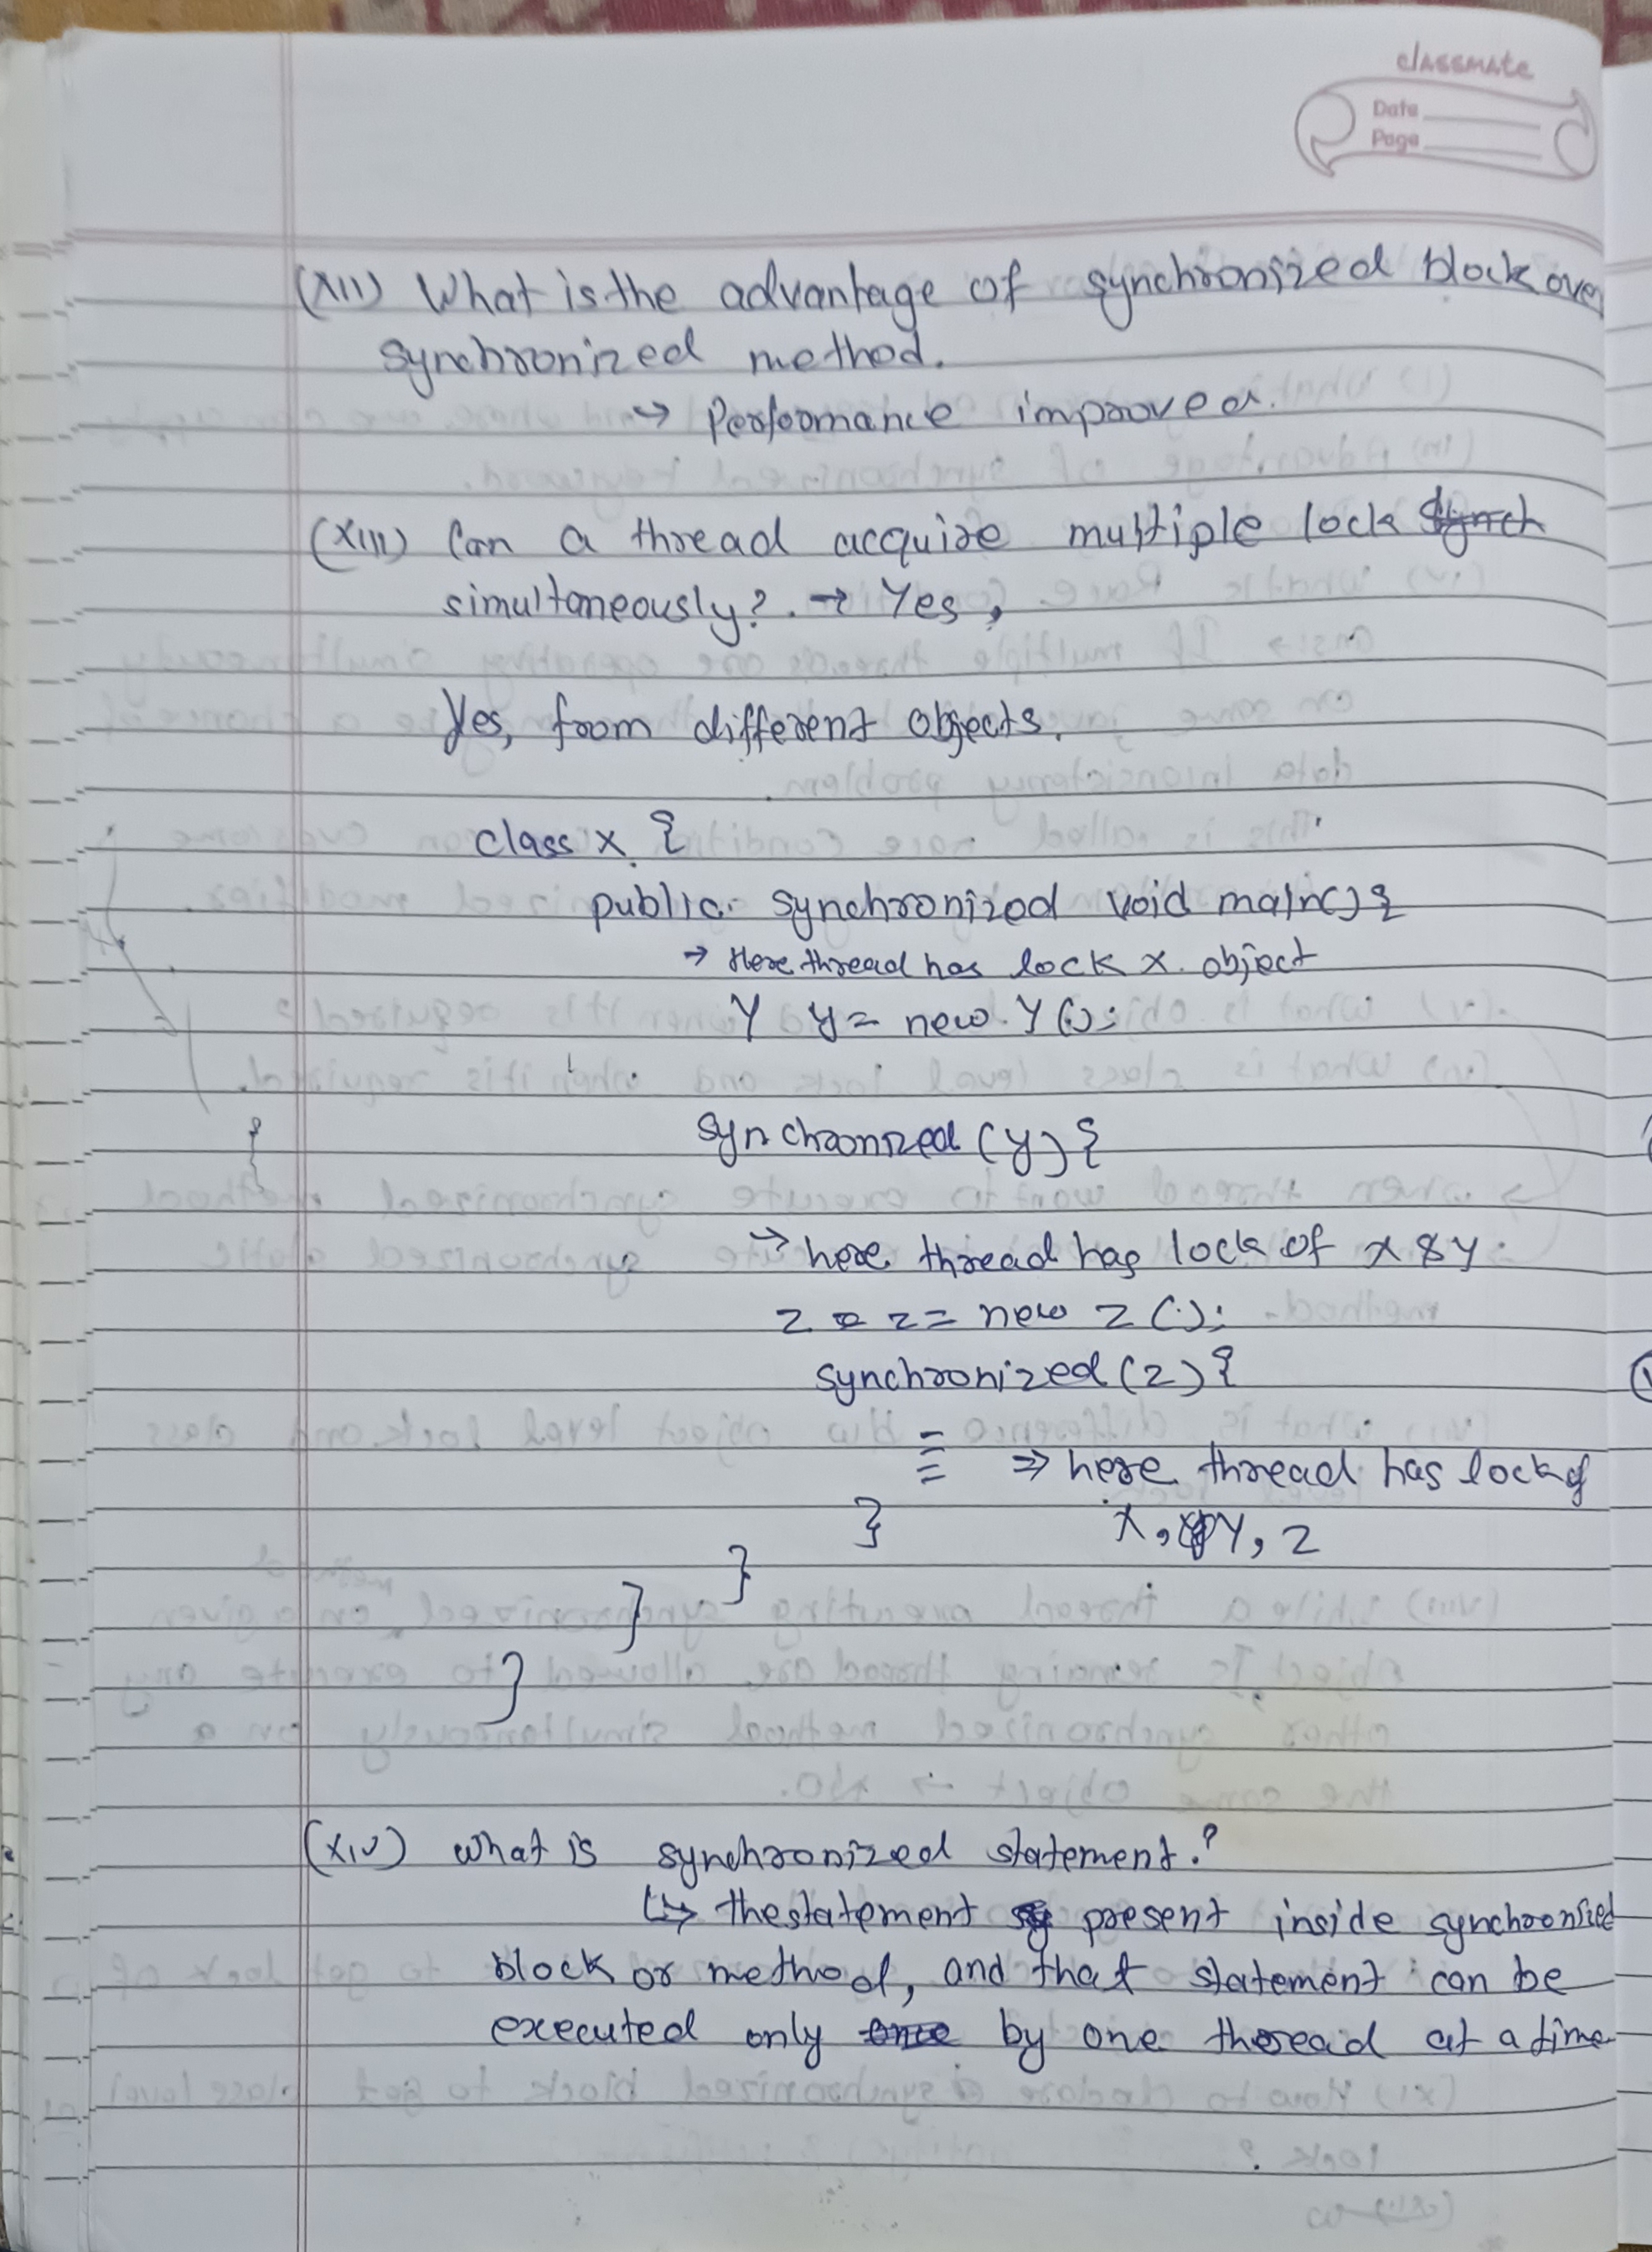 classmate
Date
Page
(XII) What is the advantage of synchronized block over
synchronized method.
→ Performance improved.
(XIII) Can a thread acquire multiple lock Synch
simultaneously? → Yes,
Yes, from different objects.
class X {
public synchronized void main() {
→ Here thread has lock X object
Y y = new Y();
synchronized (y) {
→ here thread has lock of X & Y
Z z = new Z();
synchronized (z) {
⇒ here thread has lock of
} X, Y, Z
}
}
}
(XIV) What is synchronized statement?
↳ the statement present inside synchronized
block or method, and that statement can be
executed only once by one thread at a time